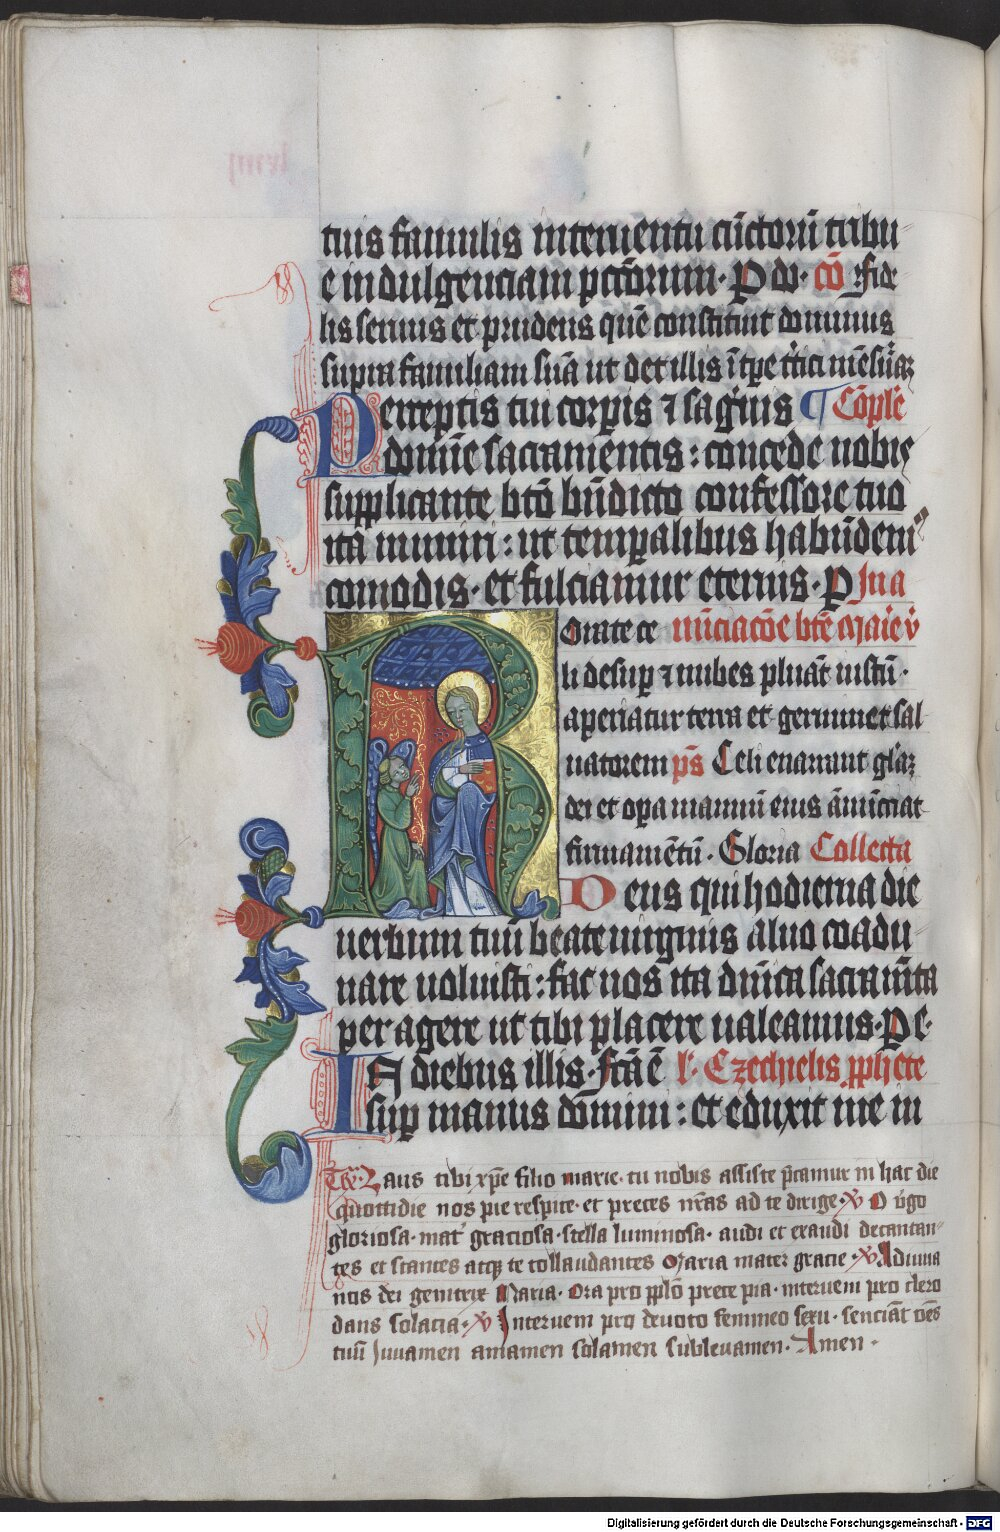 tuis famulis interuentu cūctorū tribu
e indulgenciam pctōrum. P do. cō Fide
lis seruus et prudens quē constituit dominus
supra familiam suā ut det illis ī tp̄e tritici mēsurā
Perceptis tui corpis ⁊ sāguīs ¶ Cōplē
domīe sacramentis: concede nobis
supplicante btō bn̄dicto confessore tuo
ita muniri: ut temꝑalibus habūdem
comodis. et fulciamur eternis. P In a
Rorate ce nūciacōe btē Marie v̄
li desuꝑ ⁊ nubes pluāt iustū.
aperiatur terra et germinet sal
uatorem ps̄ Celi enarrant glā
dei et oꝑa manuū eius ānūciat
firmamētū. Gloria Collecta
Deus qui hodierna die
uerbum tuū beate uirginis aluo coadu
nare uoluisti: fac nos ita dn̄ica sacramēta
per agere ut tibi placere ualeamus. Pe.
IN diebus illis. Fctā ē l. Ezechielis pphete
suꝑ manus domini: et eduxit me in
Tr̄. Laus tibi xp̄e filio marie. tu nobis assiste p̄camur in hac die
quottidie nos pie respice. et preces nr̄as ad te dirige. ℣ O v̄go
gloriosa. mat̄ graciosa. stella luminosa. audi et exaudi decantan
tes et stantes atqꝫ te collaudantes Maria mater gracie. ℣ Adiuua
ncis dei genitrix Maria. Ora pro pplō prece pia. interueni pro clero
dans solacia. ℣ Interueni pro deuoto femineo sexu. senciāt om̄s
tuū Juuamen amamen solamen subleuamen. Amen.
Digitalisierung gefördert durch die Deutsche Forschungsgemeinschaft - DFG